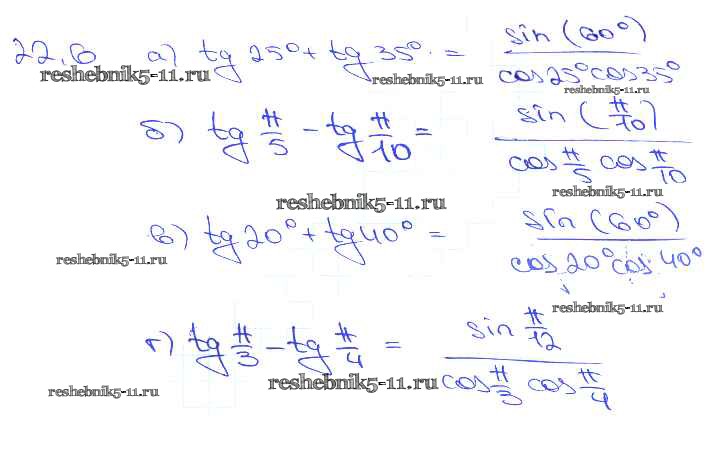 22.6 а) tg 25° + tg 35° = sin (60°) / cos 25° cos 35°
reshebnik5-11.ru reshebnik5-11.ru reshebnik5-11.ru
б) tg π/5 - tg π/10 = sin (π/10) / cos π/5 cos π/10
reshebnik5-11.ru reshebnik5-11.ru
в) tg 20° + tg 40° = sin (60°) / cos 20° cos 40°
reshebnik5-11.ru reshebnik5-11.ru
г) tg π/3 - tg π/4 = sin π/12 / cos π/3 cos π/4
reshebnik5-11.ru reshebnik5-11.ru